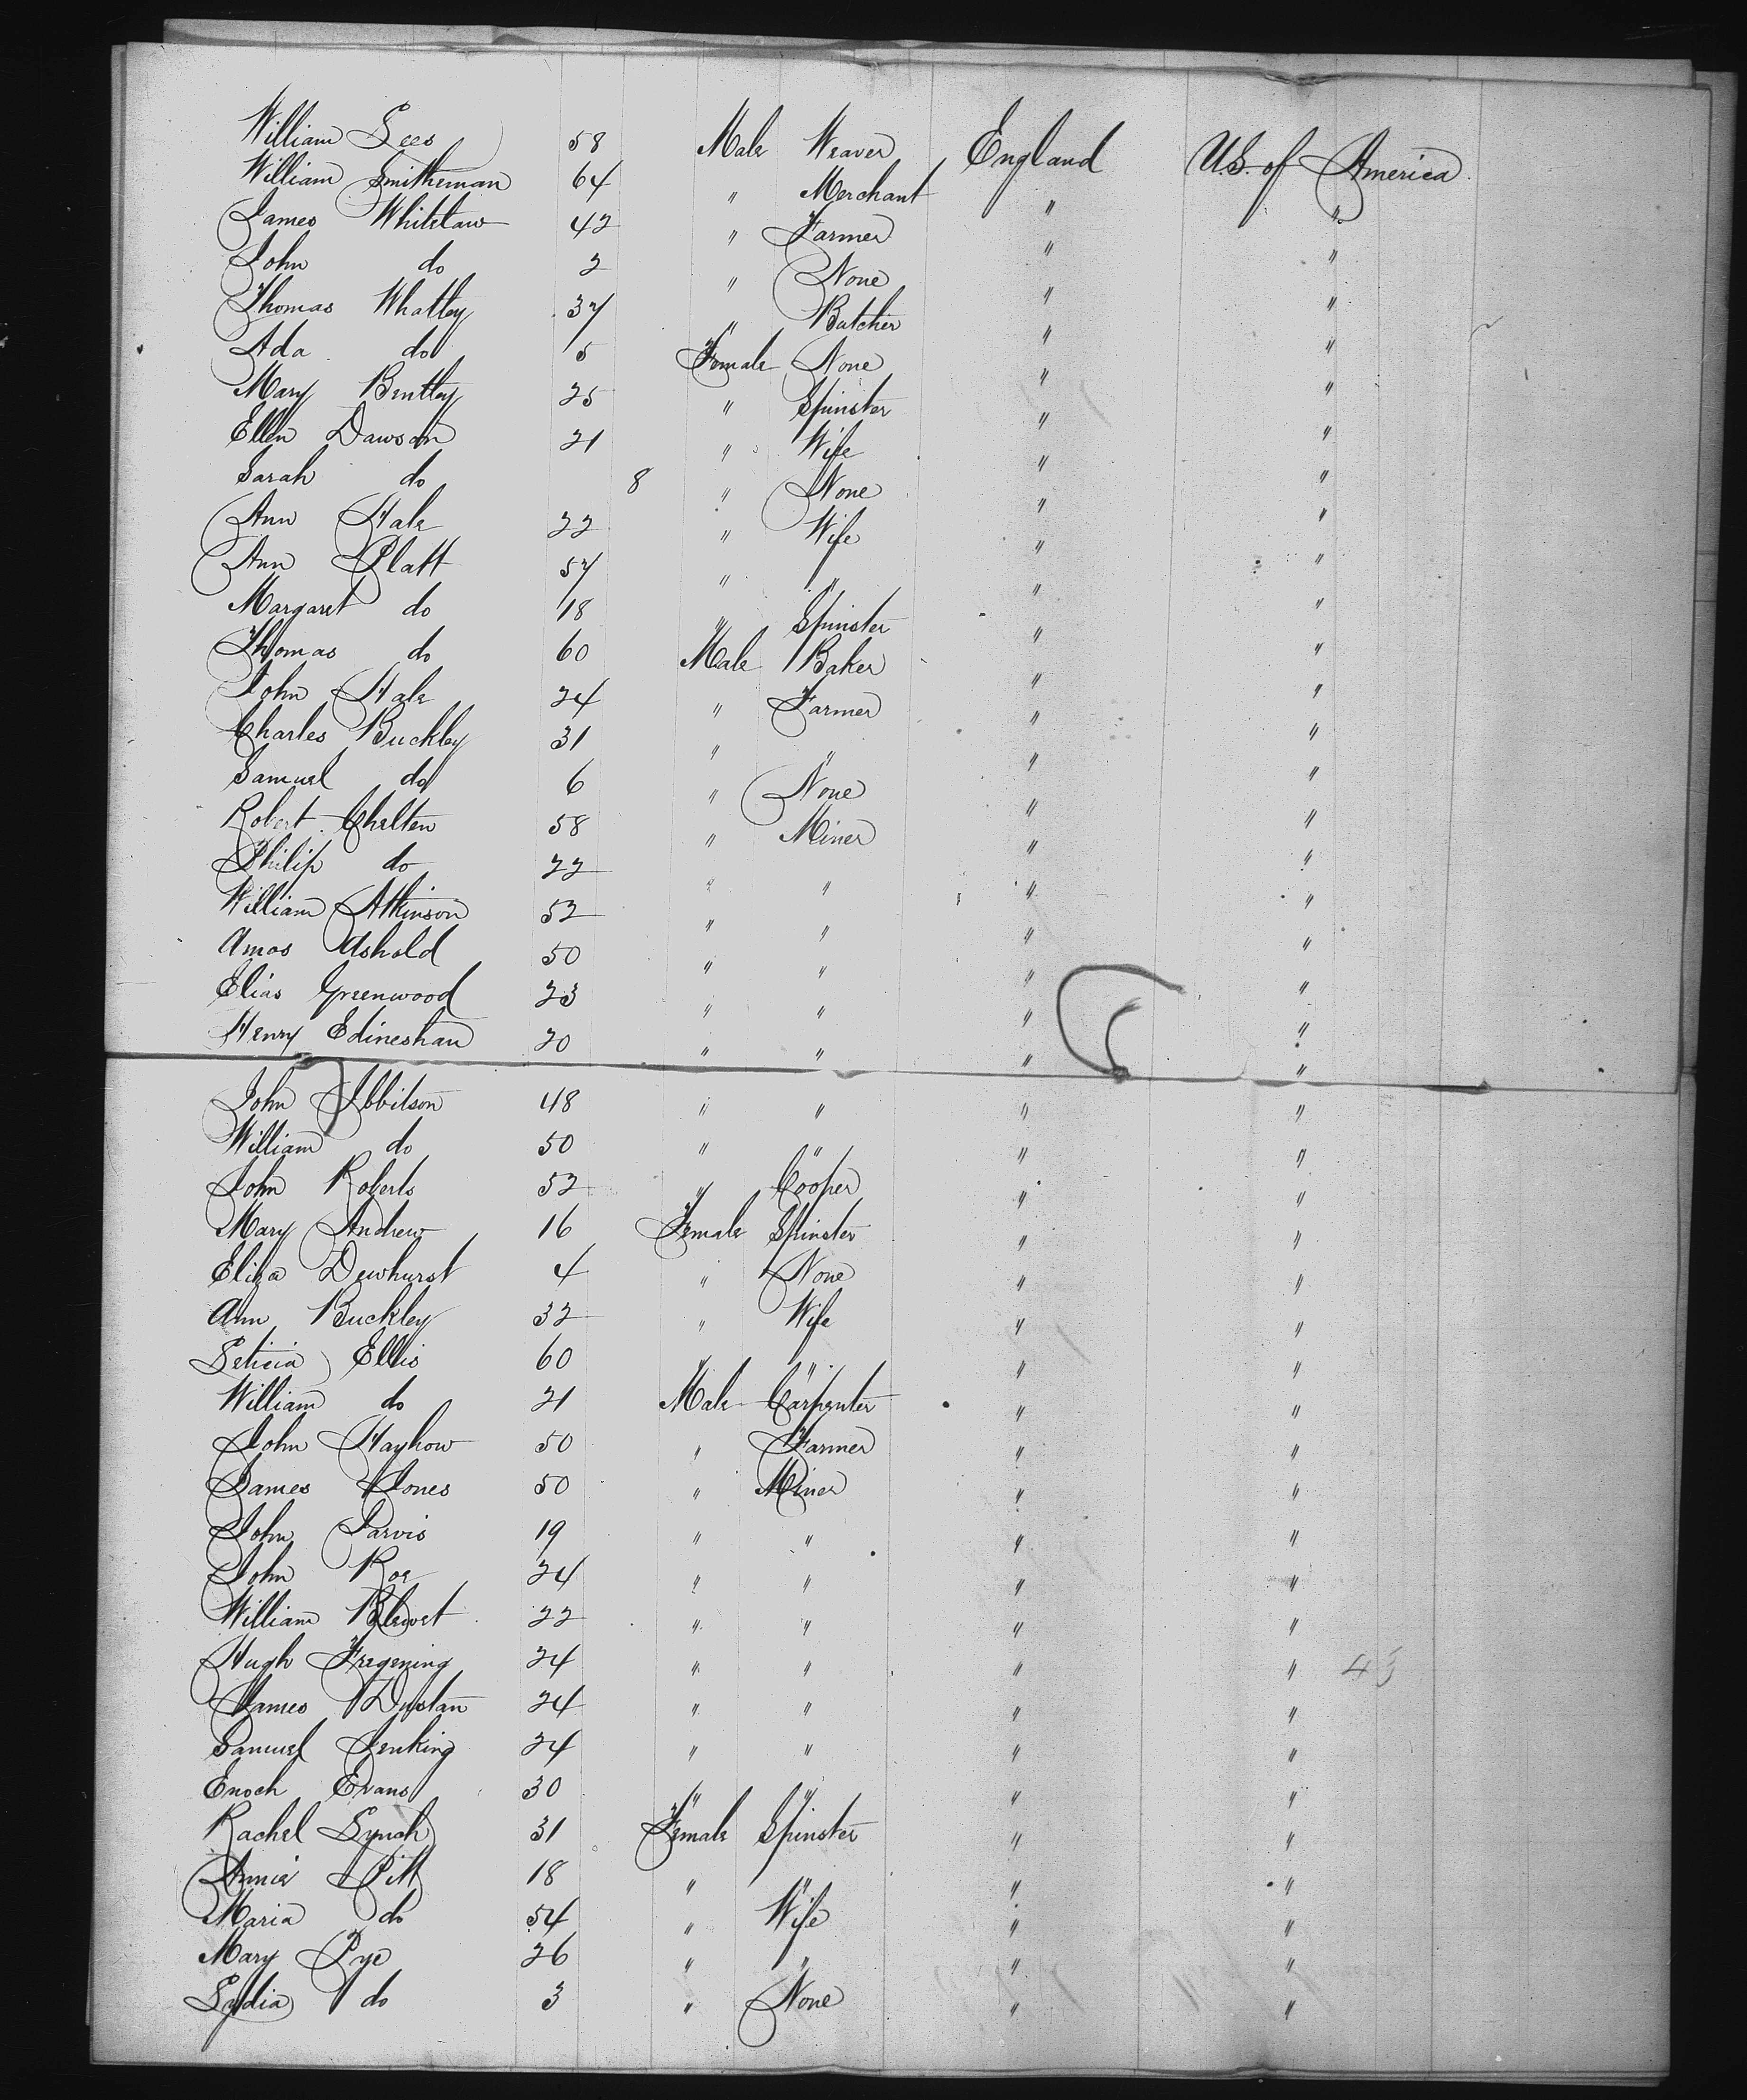 William Lees 58 Male Weaver England U.S. of America
William Smitheman 64 " Merchant " "
James Whitelaw 42 " Farmer " "
John do 2 " None " "
Thomas Whatley 37 " Butcher " "
Ada do 5 Female None " "
Mary Bentley 25 " Spinster " "
Ellen Dawson 21 " Wife " "
Sarah do 8 " None " "
Ann Hale 22 " Wife " "
Ann Platt 57 " " " "
Margaret do 18 " Spinster " "
Thomas do 60 Male Baker " "
John Hale 24 " Farmer " "
Charles Buckley 31 " " " "
Samuel do 6 " None " "
Robert Chelten 58 " Miner " "
Philip do 22 " " " "
William Atkinson 52 " " " "
Amos Ashold 50 " " " "
Elias Greenwood 23 " " " "
Henry Edineshan 20 " " " "
John Ibbitson 48 " " " "
William do 50 " " " "
John Roberts 52 " Cooper " "
Mary Andrew 16 Female Spinster " "
Eliza Dewhurst 4 " None " "
Ann Buckley 32 " Wife " "
Leticia Ellis 60 " " " "
William do 21 Male Carpenter " "
John Hayhow 50 " Farmer " "
James Jones 50 " Miner " "
John Jarvis 19 " " " "
John Roe 24 " " " "
William Blewet 22 " " " "
Hugh 24 " " " " 43
James Dustan 24 " " " "
Samuel Jenking 24 " " " "
Enoch Evans 30 " " " "
Rachel Lynch 31 Female Spinster " "
Annie Pitt 18 " " " "
Maria do 54 " Wife " "
Mary Pye 26 " " " "
Lydia do 3 " None " "